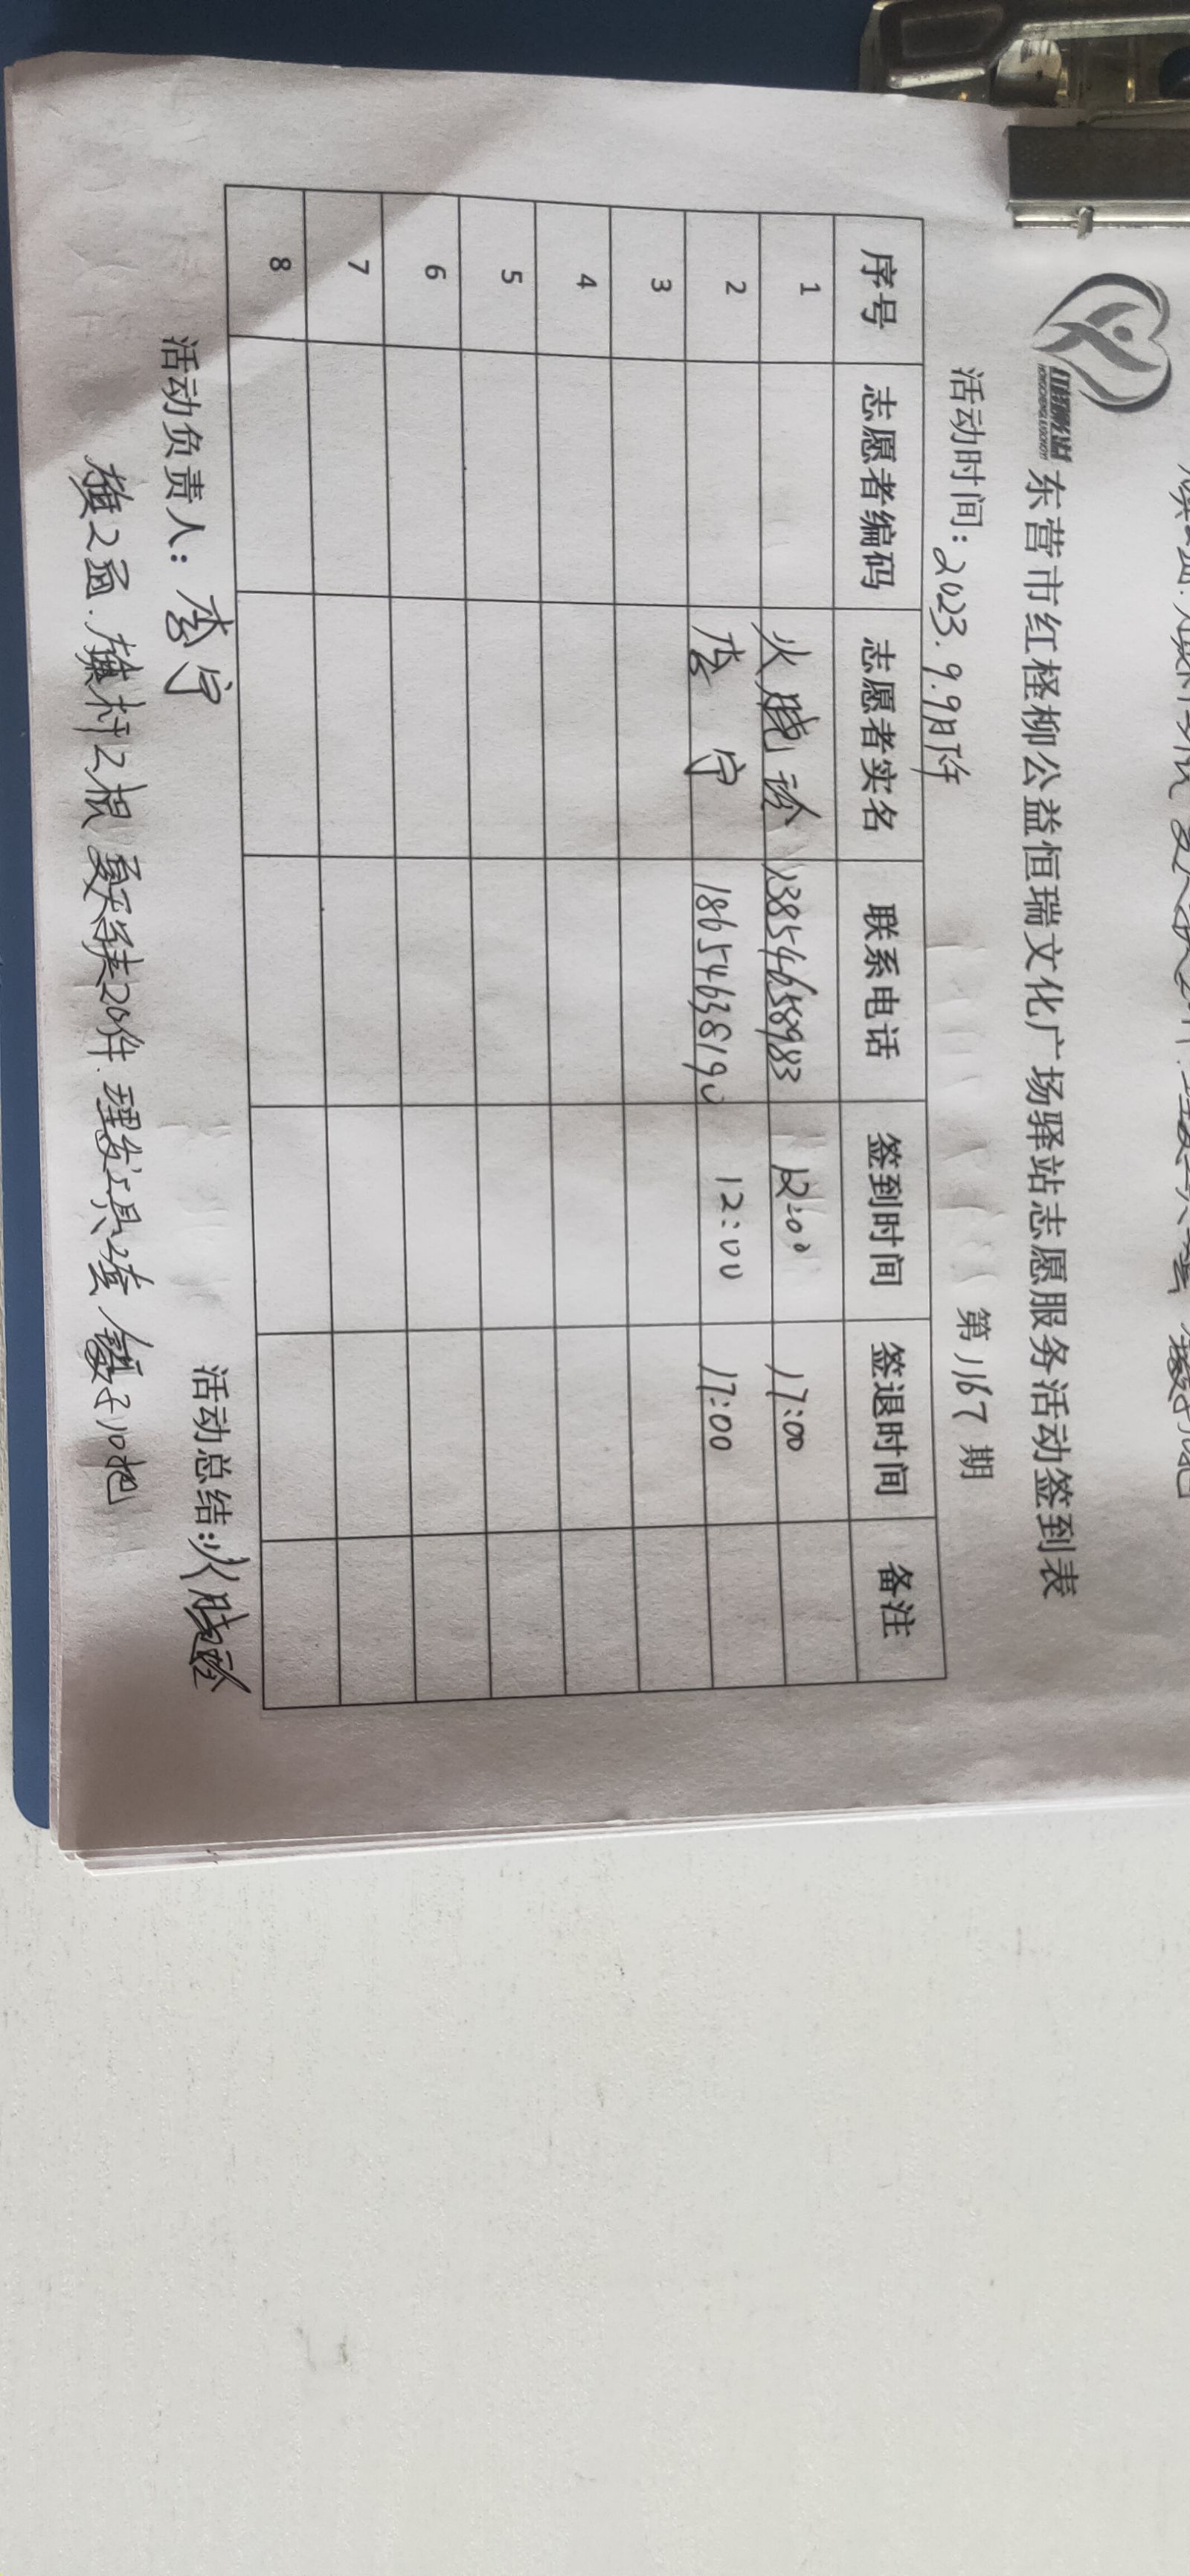 东营市红柽柳公益恒瑞文化广场驿站志愿服务活动签到表
活动时间: 2023.9.9日下午 第1167期
序号 志愿者编码 志愿者实名 联系电话 签到时间 签退时间 备注
1 火晓 13854658983 12:00 17:00
2 李宁 18654638190 12:00 17:00
3
4
5
6
7
8
活动负责人: 李宁 活动总结: 火晓
旗2面.旗杆2根 夏天 20件.理发工具2套 镊子10把